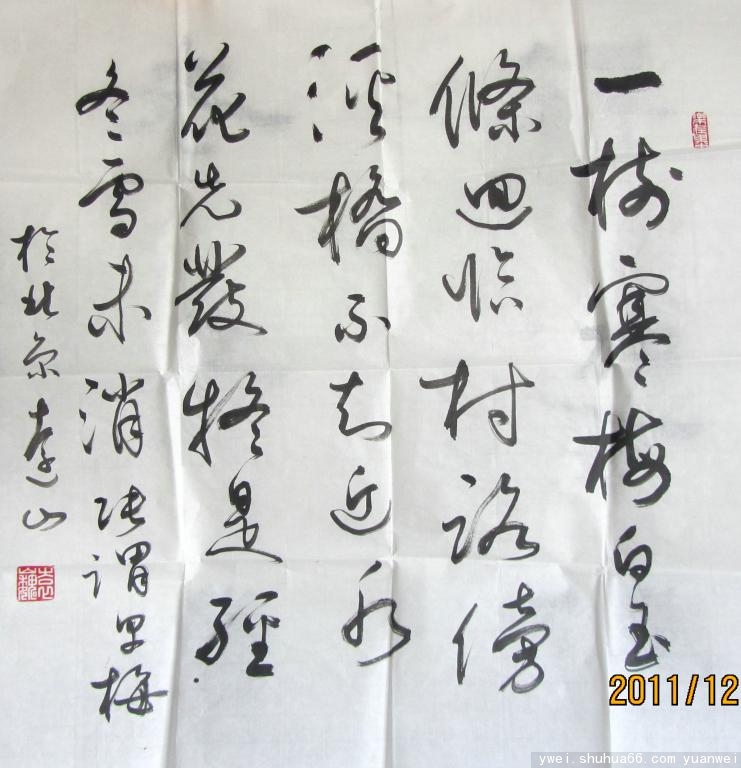 一樹寒梅白玉
條迴臨村路傍
溪橋不知近水
花先發疑是經
冬雪未消 张谓早梅
於北京遠山
2011/12
ywei.shuhua66.com yuanwei